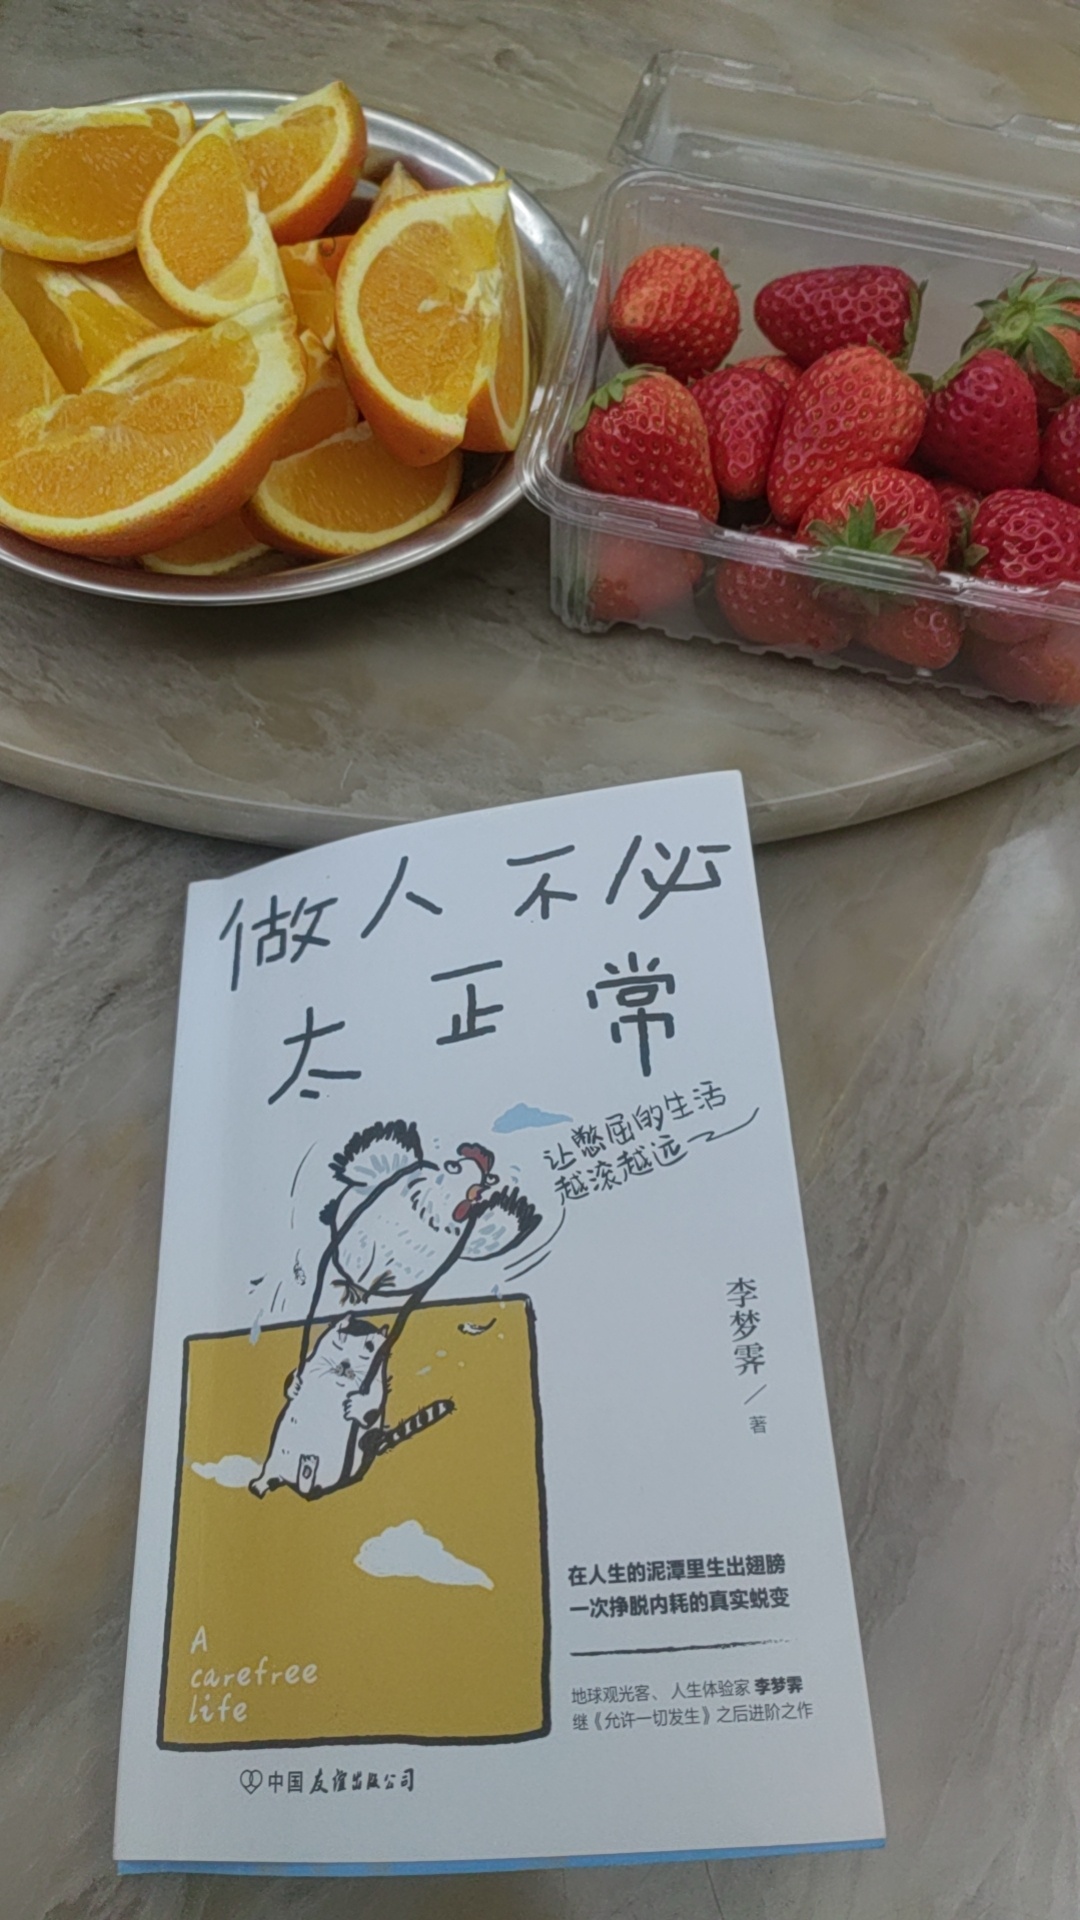 做人不必
太正常
让憋屈的生活
越滚越远
李梦霁/著
在人生的泥潭里生出翅膀
一次挣脱内耗的真实蜕变
地球观光客、人生体验家 李梦霁
继《允许一切发生》之后进阶之作
A
carefree
life
中国友谊出版公司